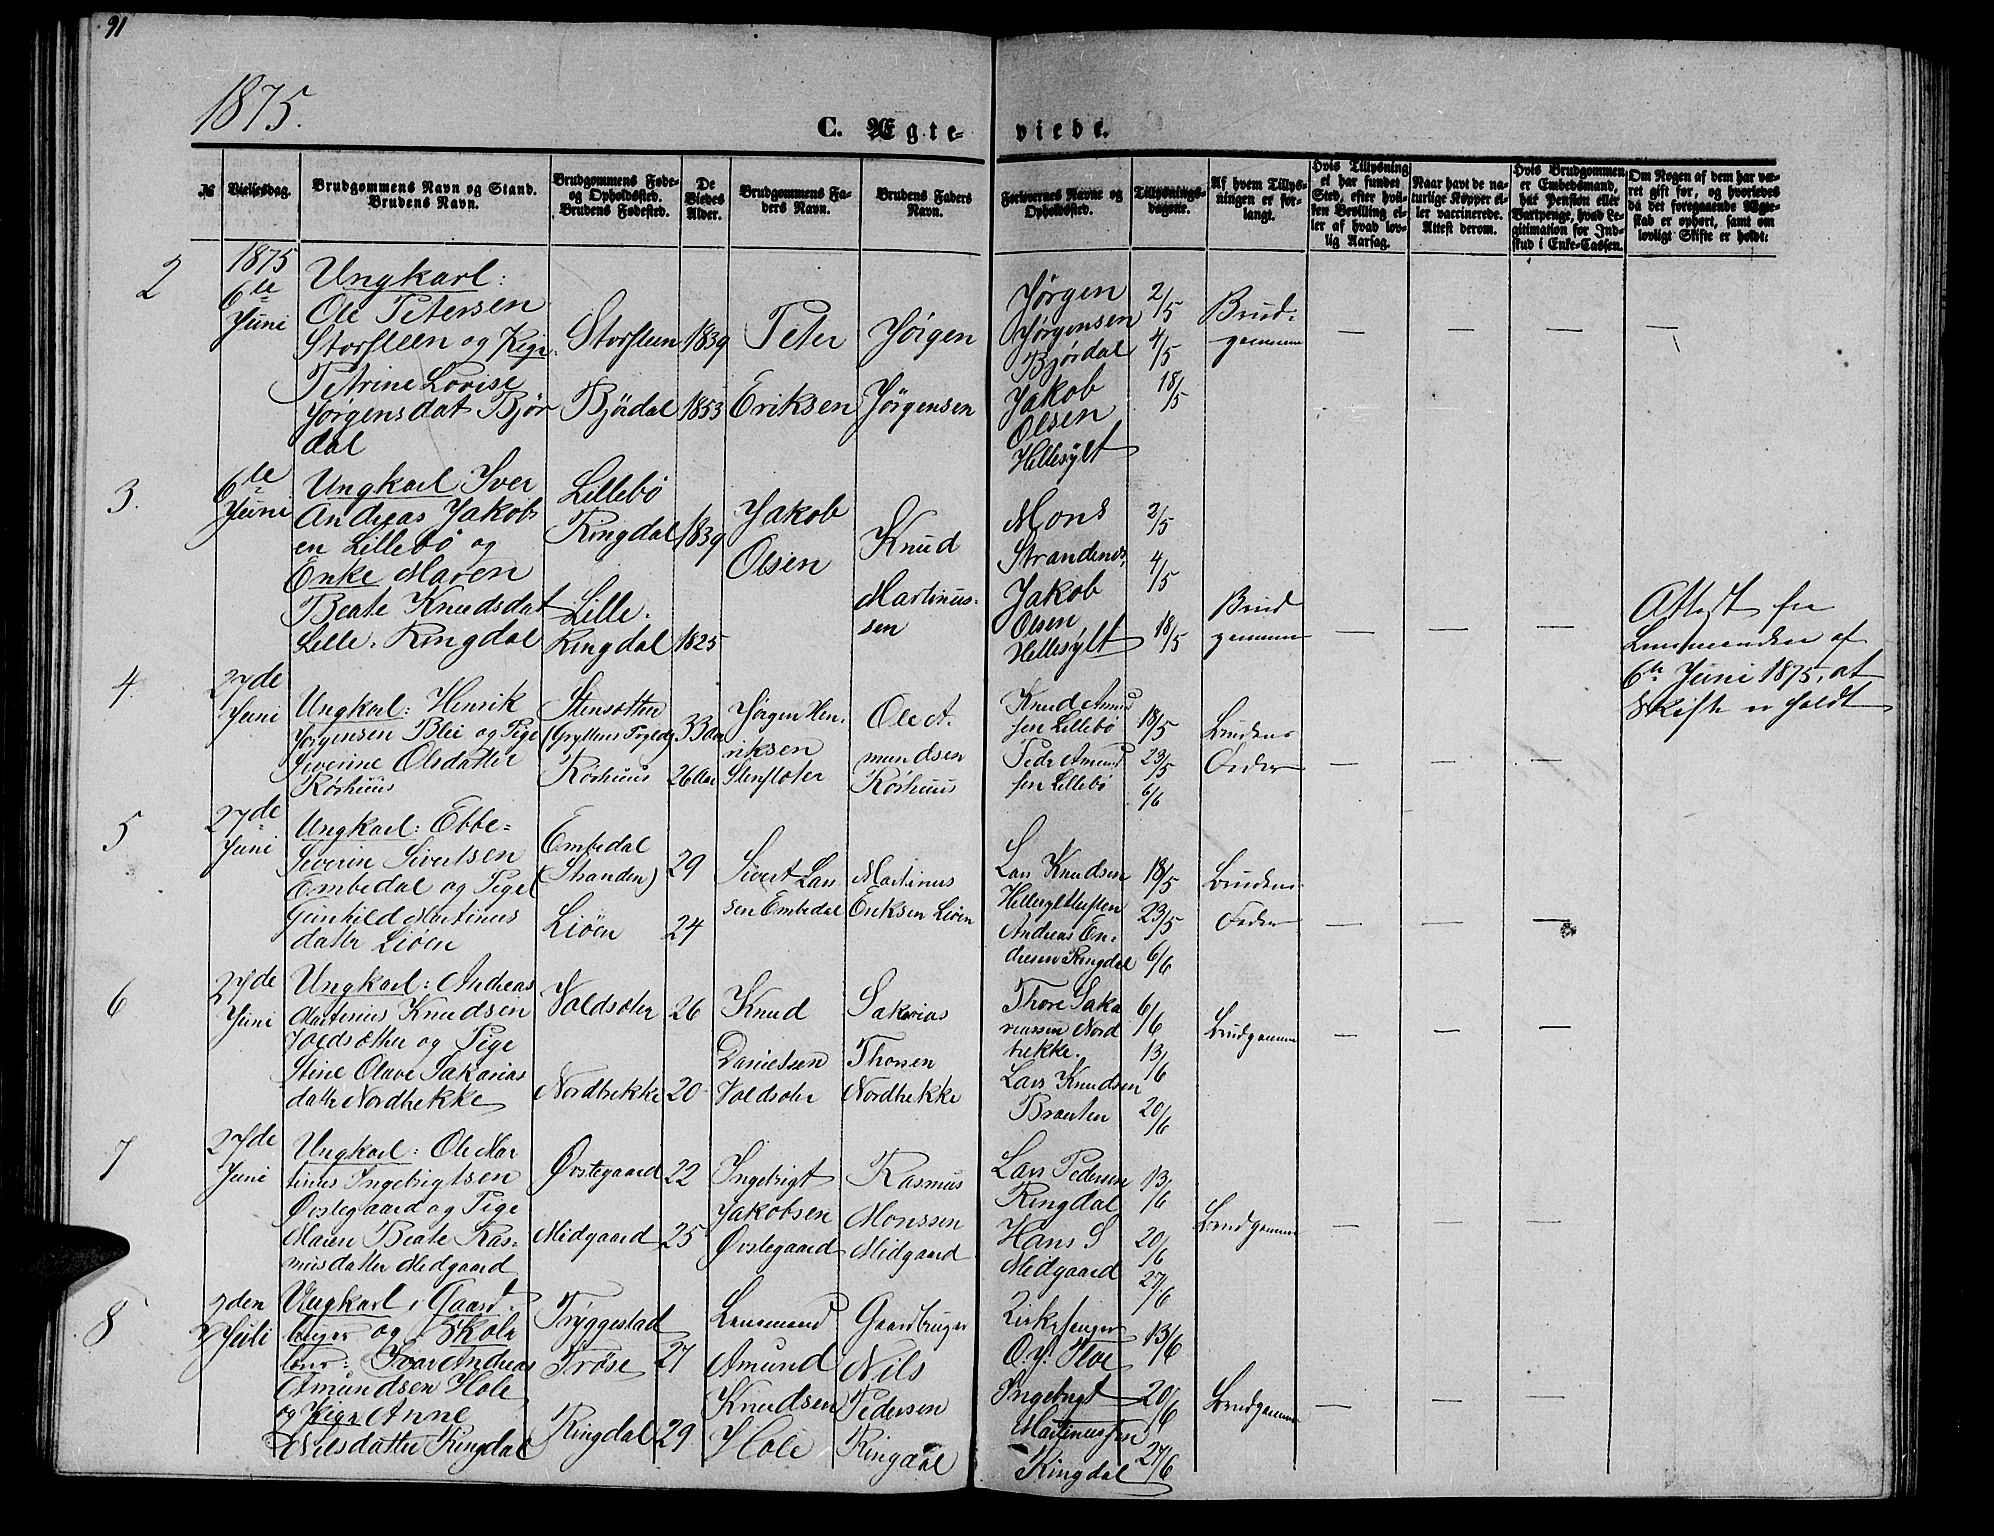 91
1875.
C. Ægteviede.
№
Vielsesdag.
Brudgommens Navn og Stand.
Brudens Navn.
Brudgommens Føde-
og Opholdssted.
Brudens Fødested.
De
Viedes
Alder.
Brudgommens Fa-
ders Navn.
Brudens Faders
Navn.
Forlovernes Navne og
Opholdssted.
Tillysnings-
dagene.
Af hvem Tillys-
ningen er for-
langt.
Hvis Tillysning
ei har fundet
Sted, efter hvil-
ken Bevilling el-
ler af hvad lov-
lig Aarsag.
Naar havt de na-
turlige Kopper el-
ler vaccinerede.
Attest derom.
Hvis Brudgommen
er Embedsmand,
hat Pension eller
Vartpenge, hvad Le-
gitimation for Ind-
skud i Enke-Cassen.
Om Nogen af dem har væ-
ret gift før, og hvorledes
da det foregaaende Ægte-
skab er ophørt, samt om
lovligt Skifte er holdt:
2
1875
6te
Juni
Ungkarl:
Ole Petersen
Storsteen og Pige
Petrine Lovise
Jørgensdat Bjør
dal
Storsteen
Bjørdal
1839
1853
Peter
Eriksen
Jørgen
Jørgensen
Jørgen
Jørgensen
Bjørdal
Jakob
Olsen
Hellesylt
2/5
4/5
18/5
Brud-
gommen
— — — —
3.
6te
Juni
Ungkarl Iver
Andreas Jakobs
en Lillebø og
Enke Maren
Beate Knudsdat
Lille. Ringdal
Lillebø
Ringdal
Lille.
Ringdal
1839
1825
Jakob
Olsen
Knud
Martinus-
sen
Mons
Strandenes
Jakob
Olsen
Hellesylt
2/5
4/5
18/5
Brud
gommen
— — —
Attest fra
Lensmanden af
6te Juni 1875, at
Skifte er holdt
4.
27de
Juni
Ungkarl: Henrik
Jørgensen Blei og Pige
Severine Olsdatter
Rørhuus
Rørhuus
33 Aar
26 Aar
Jørgen Hen-
riksen
Ole A-
mundsen
Rørhuus
Knud Amund
sen Lillebø
Peder Amund
sen Lillebø
18/5
23/5
6/6
Brudens
Fader
5
27de
Juni
Ungkarl: Ebbe-
Severin Sivertsen
Embedal og Pige
Gunhild Martinus
datter Liøen
Embedal
(Stranden)
Liøen
29
24
Sivert Lar
sen Embedal
Martinus
Eriksen Liøen
Lars Knudsen
Andreas En-
dresen Ringdal
18/5
23/5
6/6
Brudens
Fader
— — —
6
27de
Juni
Ungkarl: Andreas
Martinus Knudsen
Voldsæther og Pige
Stine Olave Sakarias
datter Nordtrekke
Voldsæter
Nordtrekke
26
20
Knud
Danielsen
Voldsæter
Sakarias
Thorsen
Nordtrekke
Thore Saka
riassen Nord
trekke.
Lars Knudsen
Braaten
6/6
13/6
20/6
Brudgommen
— — —
7
27de
Juni
Ungkarl: Ole Mar
tinus Ingebrigtsen
Øvstegaard og Pige
Maren Beate Ras-
musdatter Midgaard
Øvstegaard
Midgaard
22
25
Ingebrigt
Jakobsen
Øvstegaard
Rasmus
Monssen
Midgaard
Lars Pedersen
Ringdal
Hans S
Midgaard
13/6
20/6
27/6
Brudgommen
— — —
8
2den
Juli
Ungkarl, Gaard-
bruger og Skole
lærer: Ivar Andreas
Amundsen Hole
og Pige Anne
Nilsdatter Ringdal
Tryggestad
Ringdal
27
29
Lensmand
Amund
Knudsen
Hole
Gaardbruger
Nils
Pedersen
Ringdal
Kirkesanger
Ingebrigt
Martinussen
Ringdal
13/6
20/6
27/6
Brudgommen
— — —